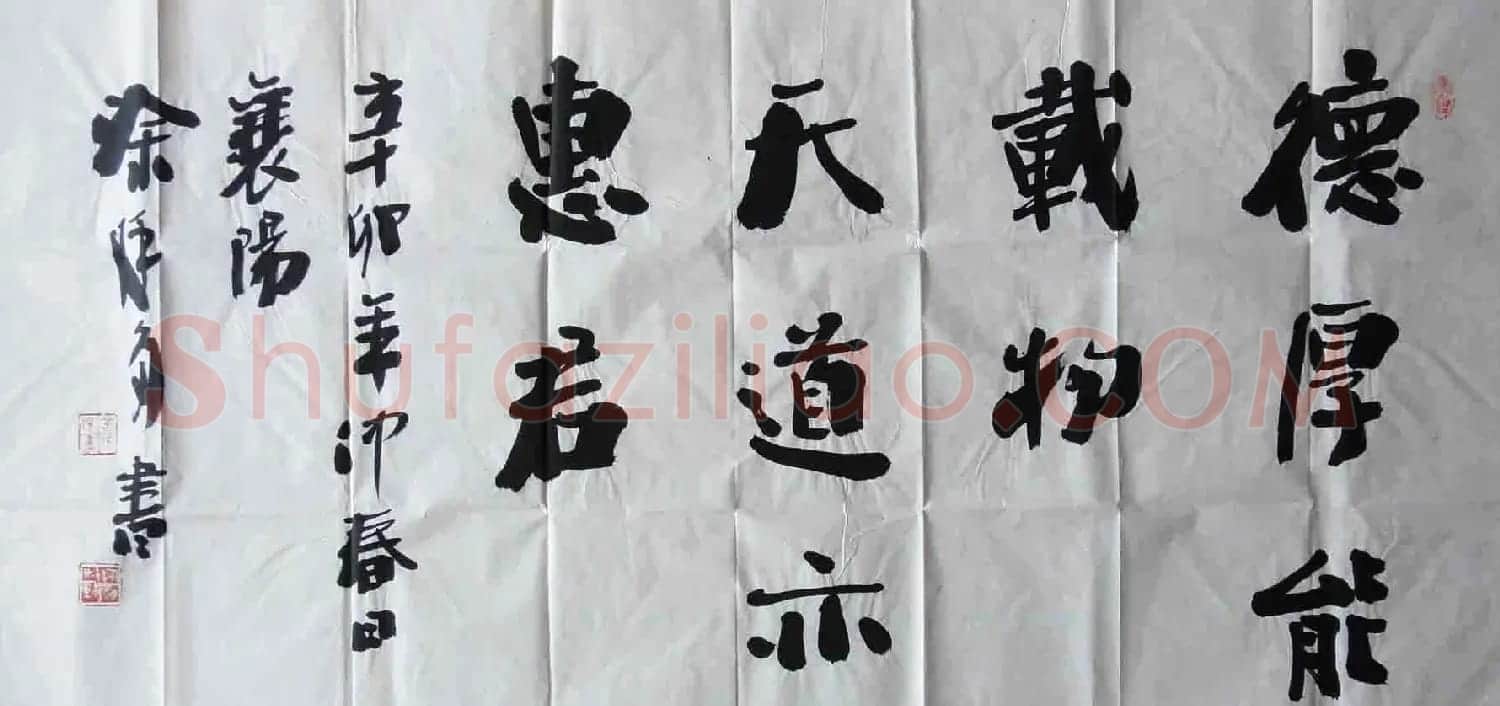 德厚能
載物
天道亦
惠君
辛卯年仲春日
襄陽
徐 书
Shufaziliao.COM